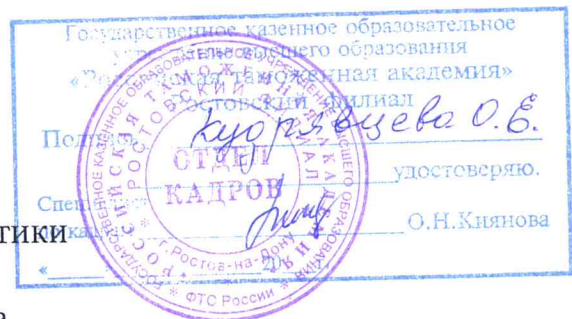 Государственное казенное образовательное
учреждение высшего образования
«Российская таможенная академия»
Ростовский филиал
Подпись Кудрявцева О.Е.
удостоверяю.
О.Н.Киянова
« 20
тики
ГОСУДАРСТВЕННОЕ КАЗЕННОЕ ОБРАЗОВАТЕЛЬНОЕ УЧРЕЖДЕНИЕ ВЫСШЕГО ОБРАЗОВАНИЯ
РОССИЙСКАЯ ТАМОЖЕННАЯ АКАДЕМИЯ
РОСТОВСКИЙ ФИЛИАЛ
ОТДЕЛ
КАДРОВ
г.Ростов-на-Дону
* ФТС России *